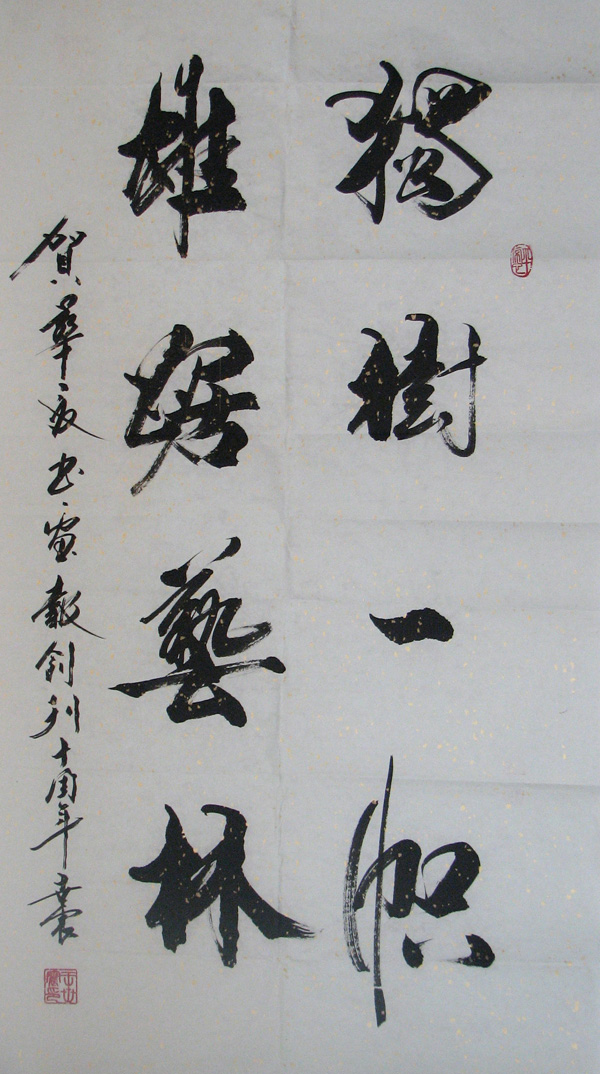 獨樹一帜
雄踞藝林
賀華夏书畫報創刊十周年